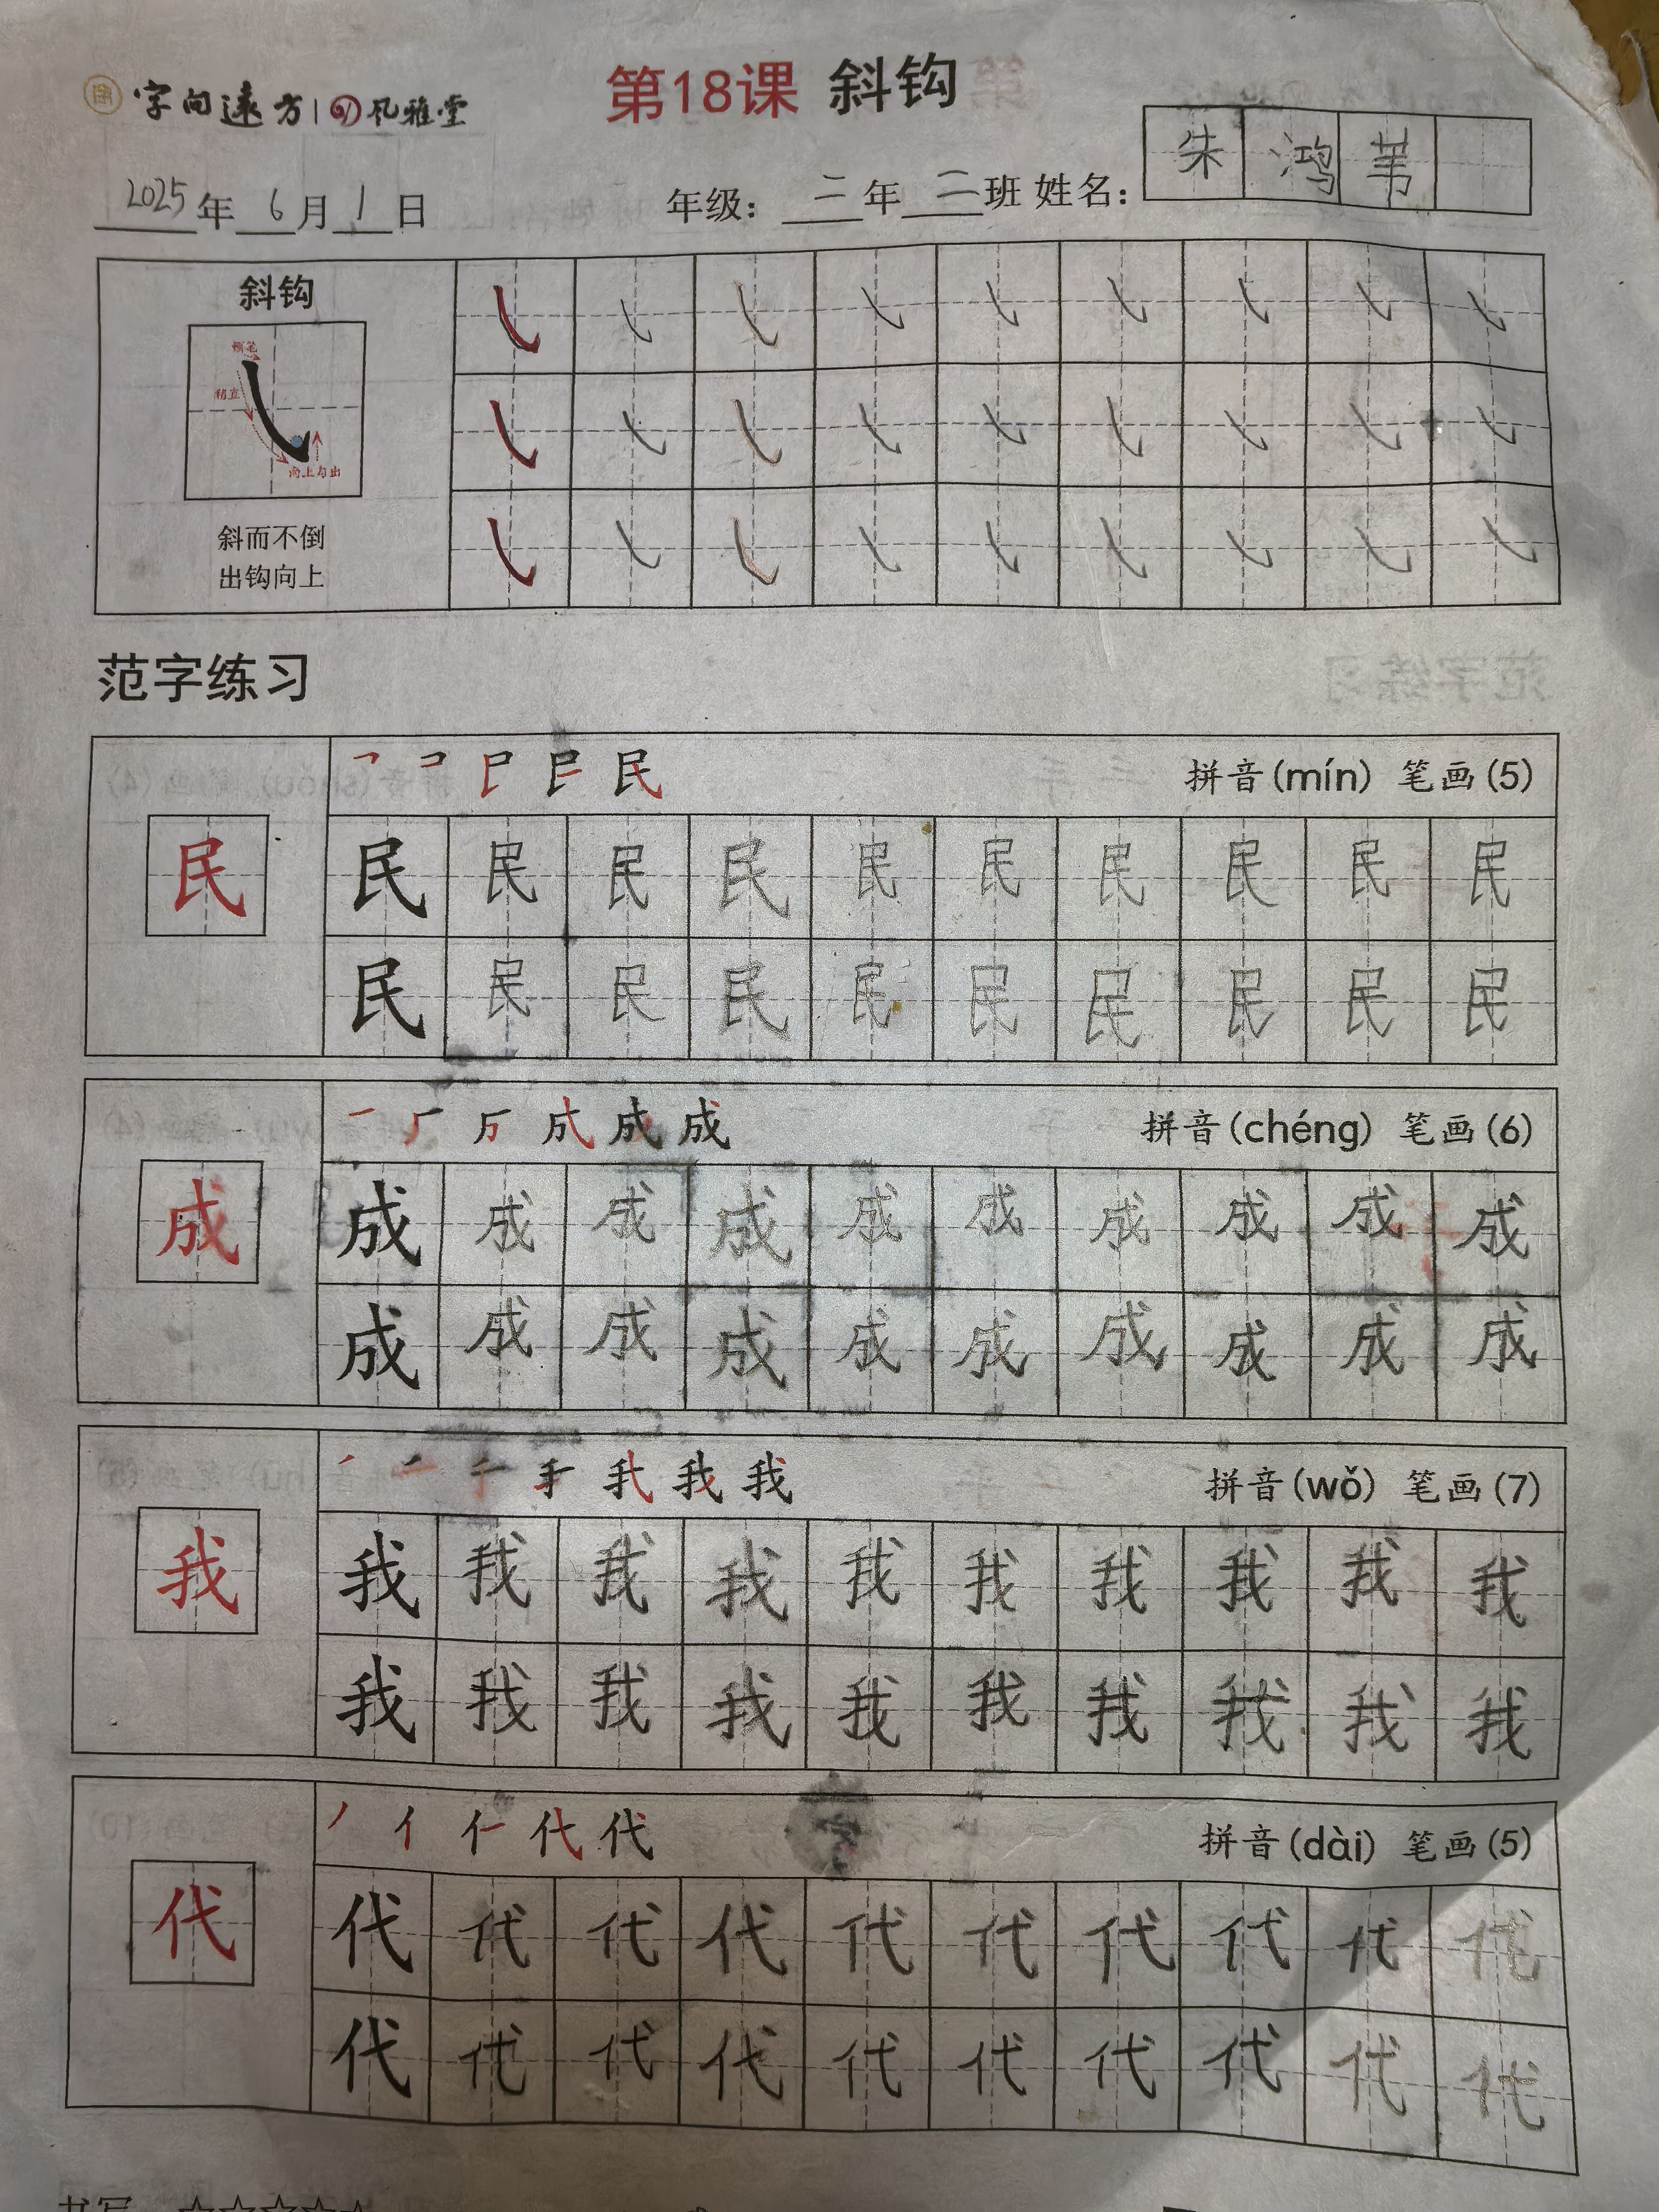 字向遠方 | 风雅堂
第18课 斜钩
2025年6月1日 年级：二年二班 姓名：朱鸿苇
斜钩
顿笔
稍直
向上勾出
斜而不倒
出钩向上
范字练习
民 拼音(mín) 笔画(5)
民 民 民 民 民 民 民 民 民 民 民
民 民 民 民 民 民 民 民 民 民
成 成 拼音(chéng) 笔画(6)
成 成 成 成 成 成 成 成 成 成 成
成 成 成 成 成 成 成 成 成 成
我 我 拼音(wǒ) 笔画(7)
我 我 我 我 我 我 我 我 我 我 我
我 我 我 我 我 我 我 我 我 我
代 代 拼音(dài) 笔画(5)
代 代 代 代 代 代 代 代 代 代 代
代 代 代 代 代 代 代 代 代 代